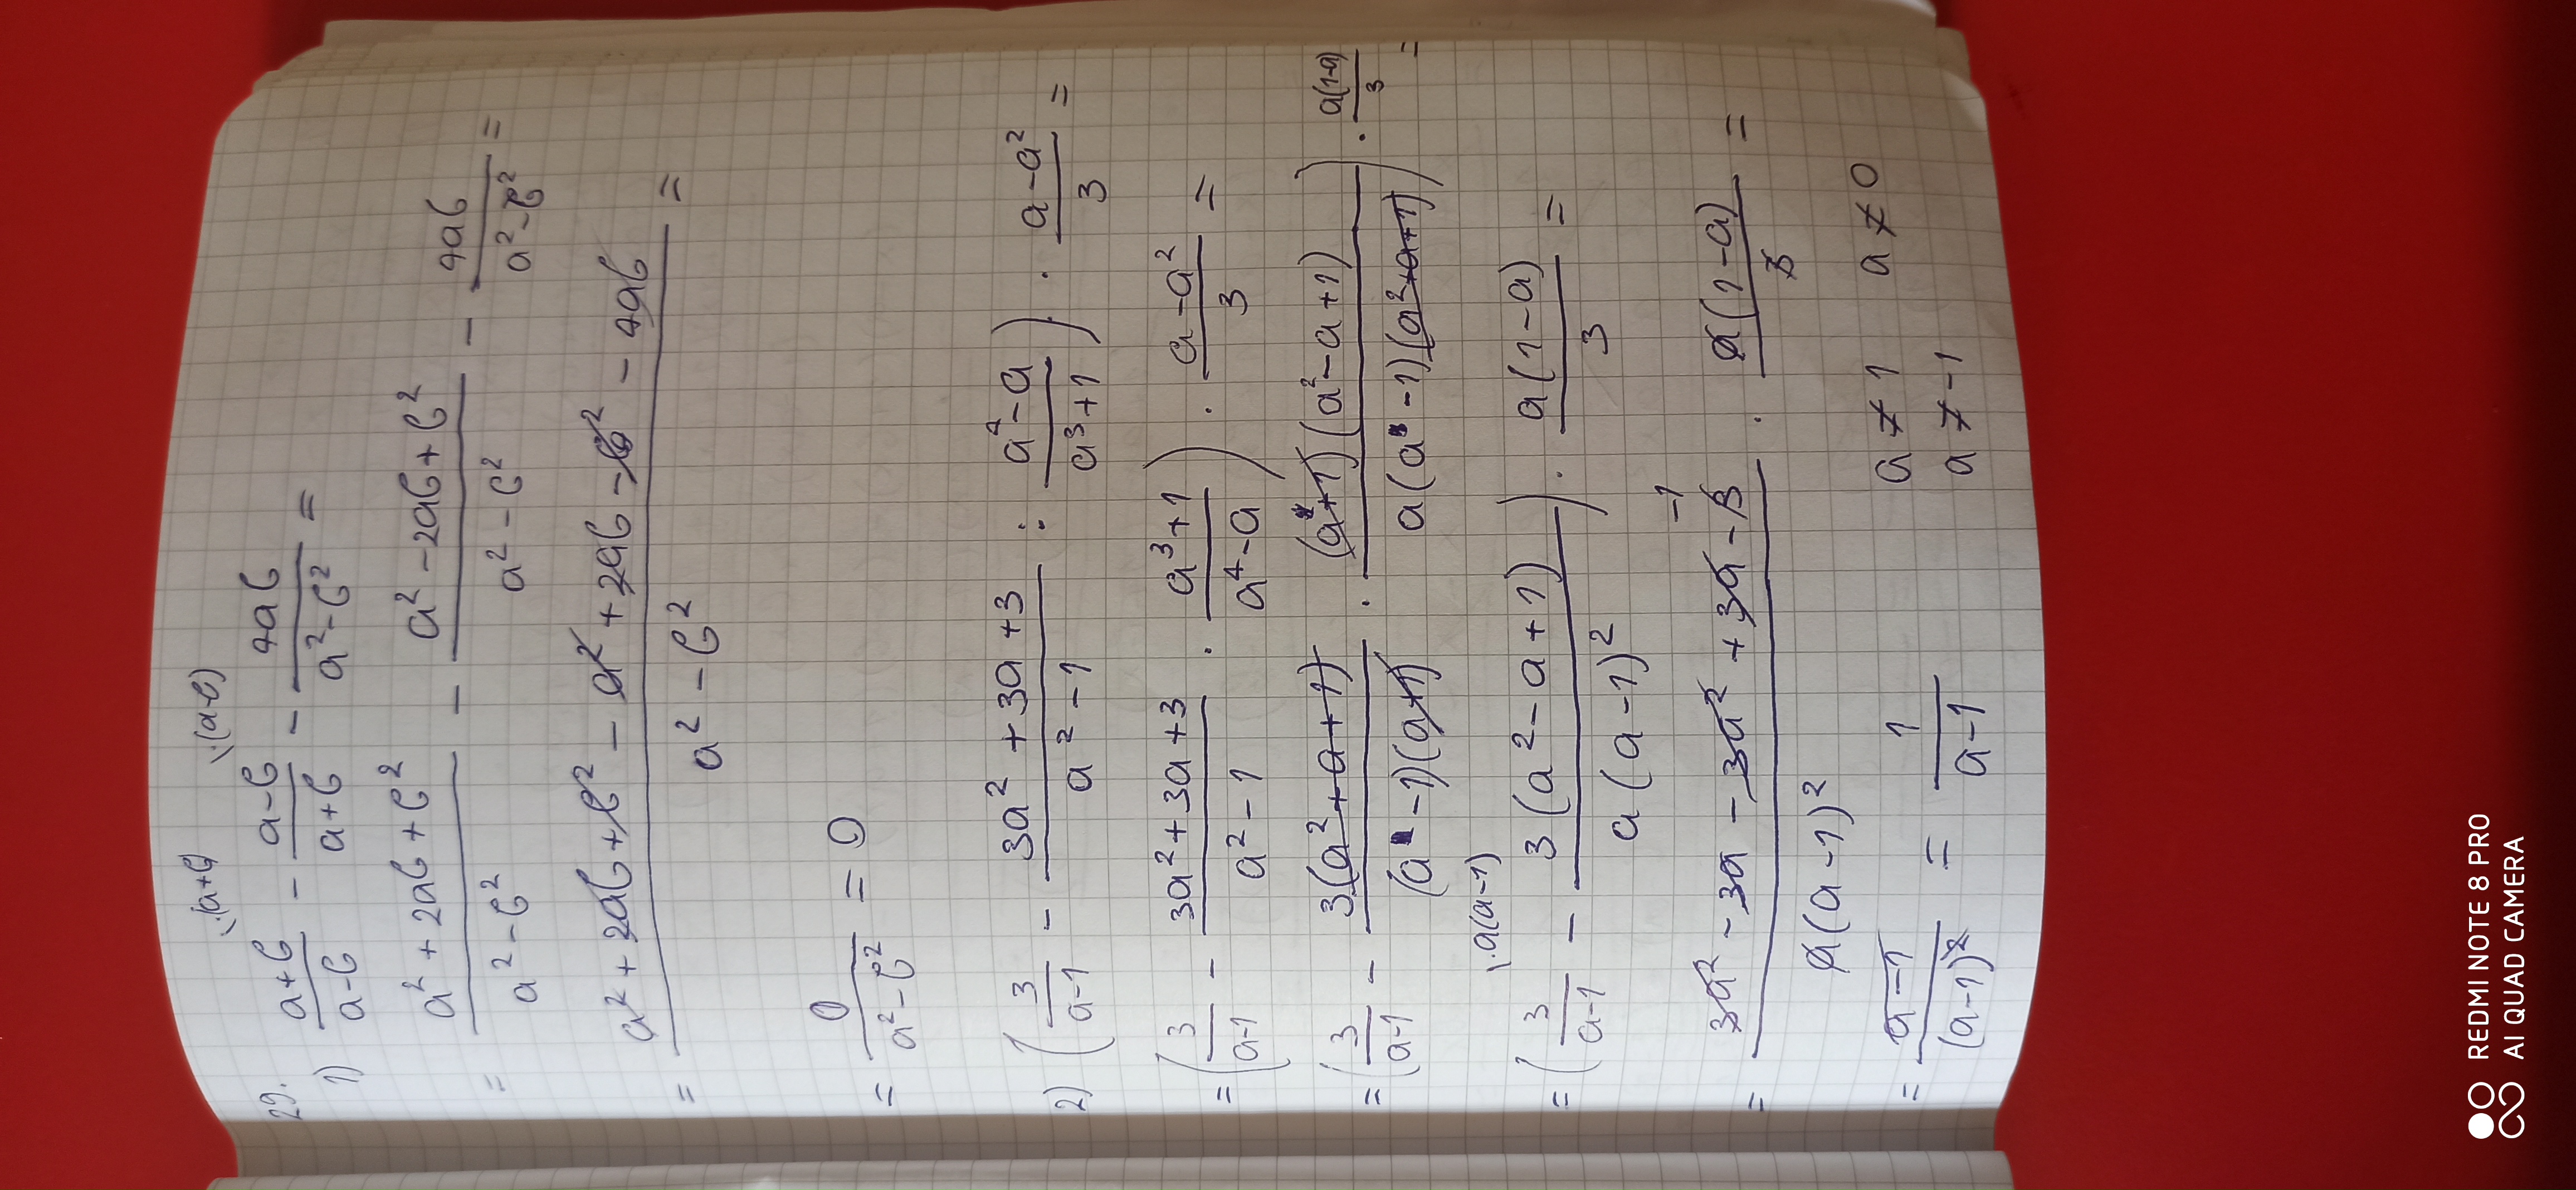 \·(a+b) \·(a-b)
29.
1) (a+b)/(a-b) - (a-b)/(a+b) - 4ab/(a²-b²) =
= (a²+2ab+b²)/(a²-b²) - (a²-2ab+b²)/(a²-b²) - 4ab/(a²-b²) =
= (a²+2ab+b²-a²+2ab-b²-4ab)/(a²-b²) =
= 0/(a²-b²) = 0
2) (3/(a-1) - (3a²+3a+3)/(a²-1) : (a⁴-a)/(a³+1)) · (a-a²)/3 =
= (3/(a-1) - (3a²+3a+3)/(a²-1) · (a³+1)/(a⁴-a)) · (a-a²)/3 =
= (3/(a-1) - 3(a²+a+1)/((a-1)(a+1)) · (a+1)(a²-a+1)/(a(a-1)(a²+a+1))) · a(1-a)/3 =
\·a(a-1)
= (3/(a-1) - 3(a²-a+1)/(a(a-1)²)) · a(1-a)/3 =
-1
= (3a²-3a-3a²+3a-3)/(a(a-1)²) · a(1-a)/3 =
= (a-1)/(a-1)² = 1/(a-1) a≠1 a≠0
a≠-1
REDMI NOTE 8 PRO
AI QUAD CAMERA